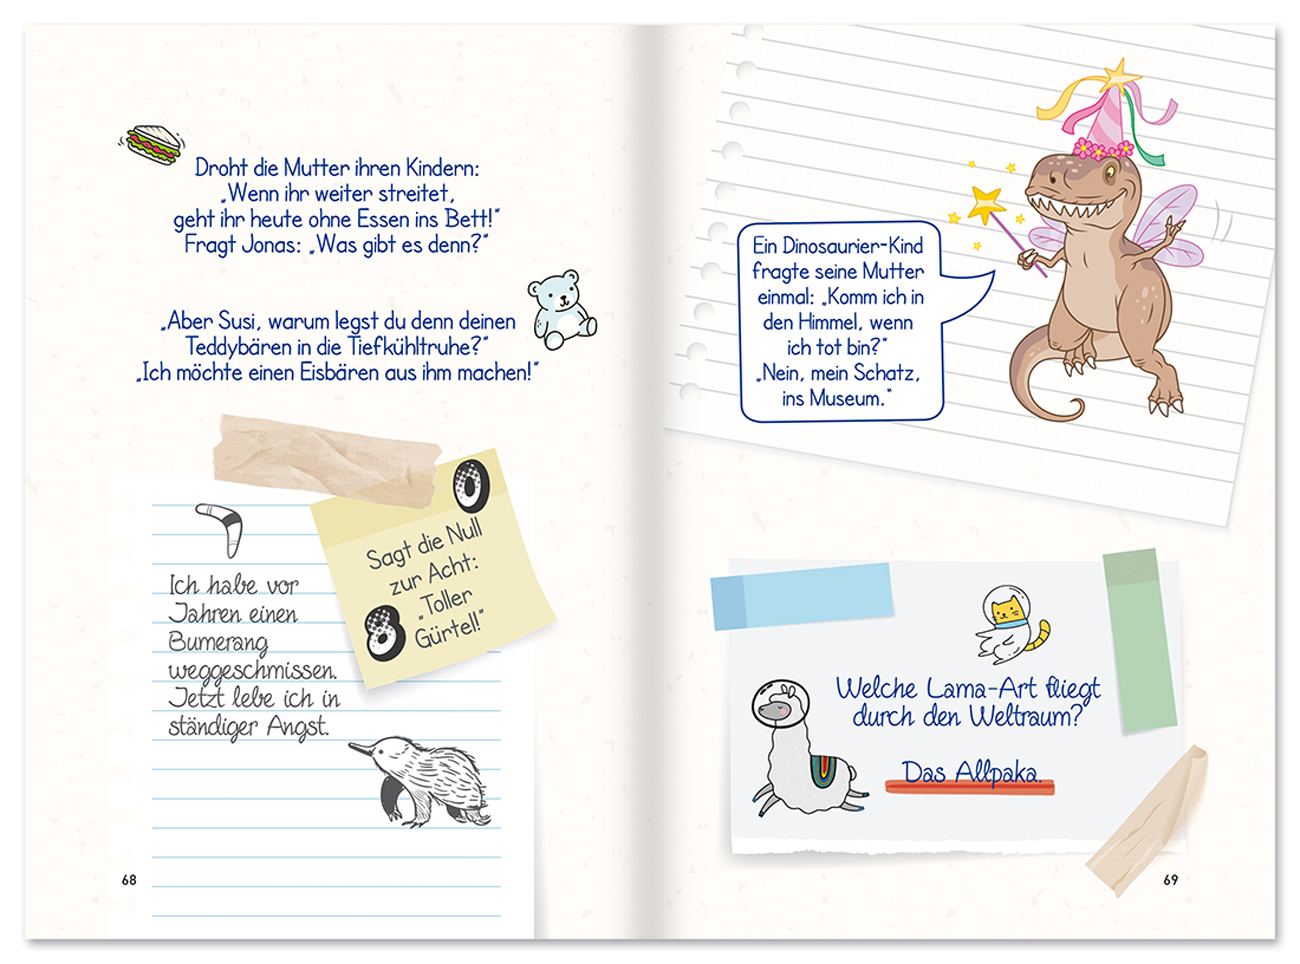 Droht die Mutter ihren Kindern:
„Wenn ihr weiter streitet,
geht ihr heute ohne Essen ins Bett!“
Fragt Jonas: „Was gibt es denn?“
„Aber Susi, warum legst du denn deinen
Teddybären in die Tiefkühltruhe?“
„Ich möchte einen Eisbären aus ihm machen!“
0
Sagt die Null
zur Acht:
„Toller
Gürtel!“
8
Ich habe vor
Jahren einen
Bumerang
weggeschmissen.
Jetzt lebe ich in
ständiger Angst.
68
Ein Dinosaurier-Kind
fragte seine Mutter
einmal: „Komm ich in
den Himmel, wenn
ich tot bin?“
„Nein, mein Schatz,
ins Museum.“
Welche Lama-Art fliegt
durch den Weltraum?
Das Allpaka.
69